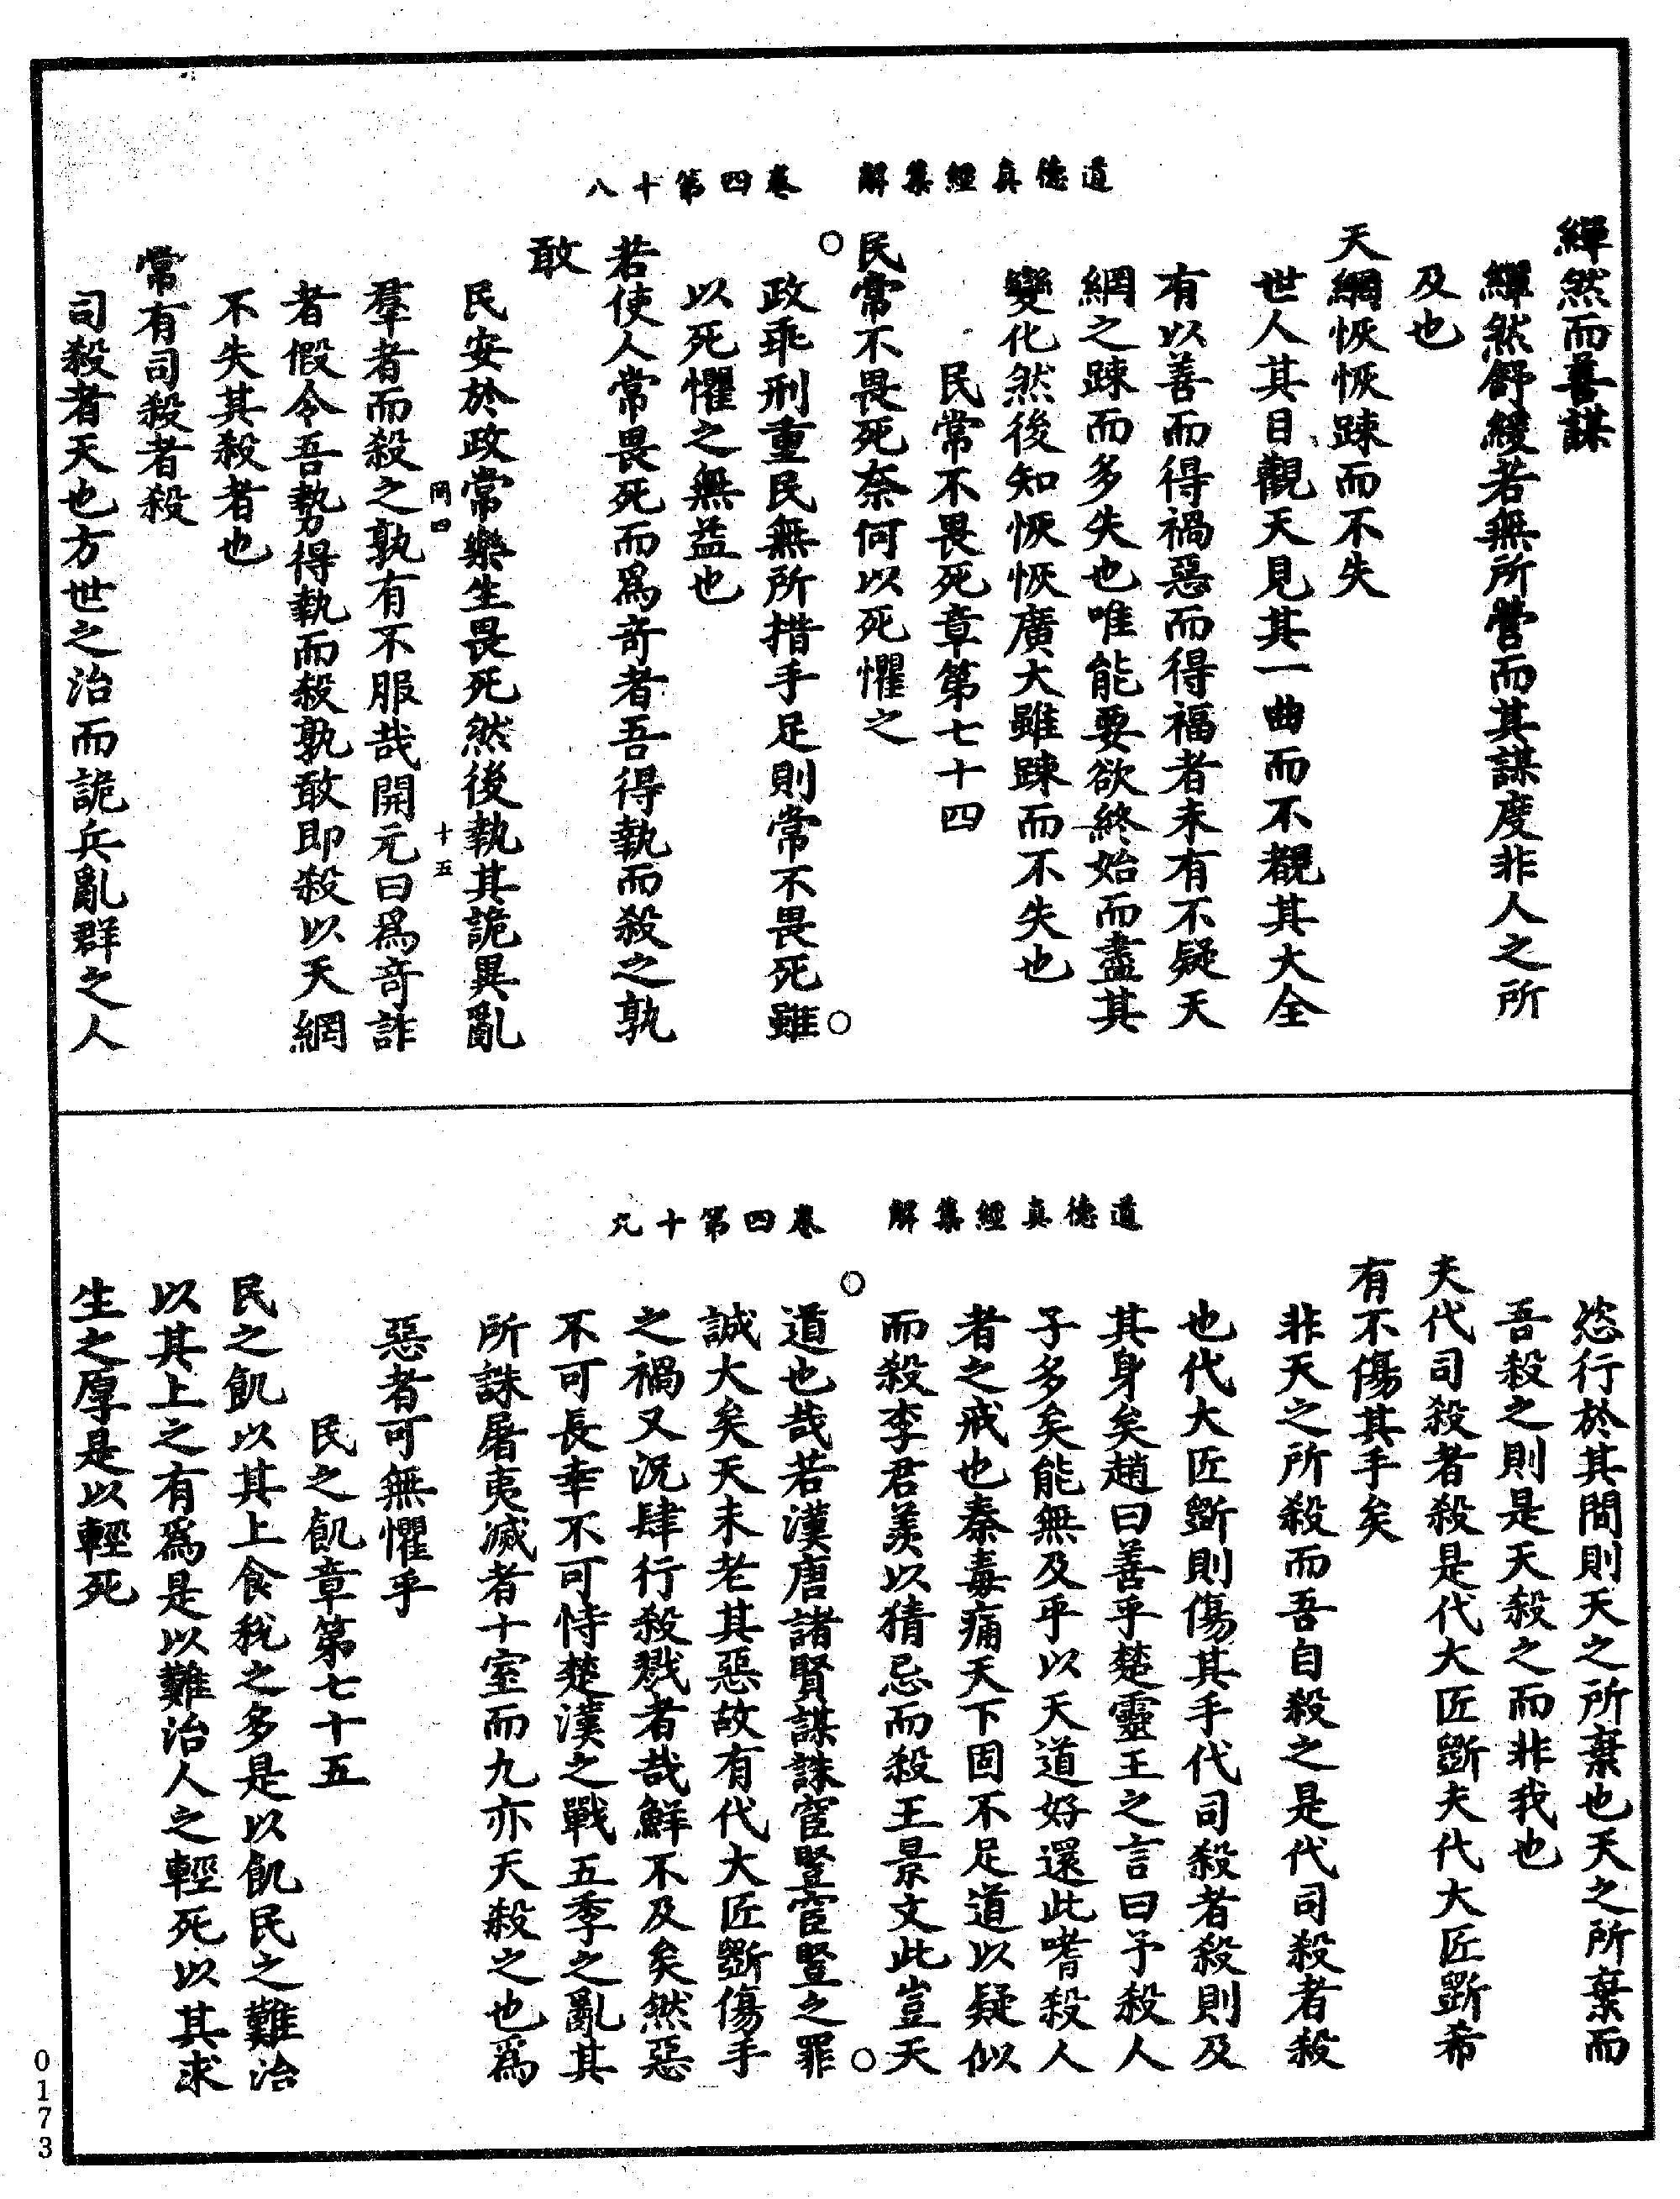 道德真經集解　卷四第十八
繟然而善謀
繟然舒緩若無所營而其謀度非人之所
及也
天網恢恢踈而不失
世人其目觀天見其一曲而不覩其大全
有以善而得禍惡而得福者未有不疑天
網之踈而多失也唯能要欲終始而盡其
變化然後知恢恢廣大雖踈而不失也
民常不畏死章第七十四
民常不畏死奈何以死懼之
政乖刑重民無所措手足則常不畏死雖
以死懼之無益也
若使人常畏死而爲奇者吾得執而殺之孰
敢
民安於政常樂生畏死然後執其詭異亂
罔四　十五
羣者而殺之孰有不服哉開元曰爲奇詐
者假令吾勢得執而殺孰敢即殺以天網
不失其殺者也
常有司殺者殺
司殺者天也方世之治而詭兵亂群之人
道德真經集解　卷四第十九
恣行於其間則天之所棄也天之所棄而
吾殺之則是天殺之而非我也
夫代司殺者殺是代大匠斲夫代大匠斲希
有不傷其手矣
非天之所殺而吾自殺之是代司殺者殺
也代大匠斲則傷其手代司殺者殺則及
其身矣趙曰善乎楚靈王之言曰予殺人
子多矣能無及乎以天道好還此嗜殺人
者之戒也秦毒痡天下固不足道以疑似
而殺李君羨以猜忌而殺王景文此豈天
道也哉若漢唐諸賢謀誅宦豎宦豎之罪
誠大矣天未老其惡故有代大匠斲傷手
之禍又況肆行殺戮者哉鮮不及矣然惡
不可長幸不可恃楚漢之戰五季之亂其
所誅屠夷滅者十室而九亦天殺之也爲
惡者可無懼乎
民之飢章第七十五
民之飢以其上食稅之多是以飢民之難治
以其上之有爲是以難治人之輕死以其求
生之厚是以輕死
0173